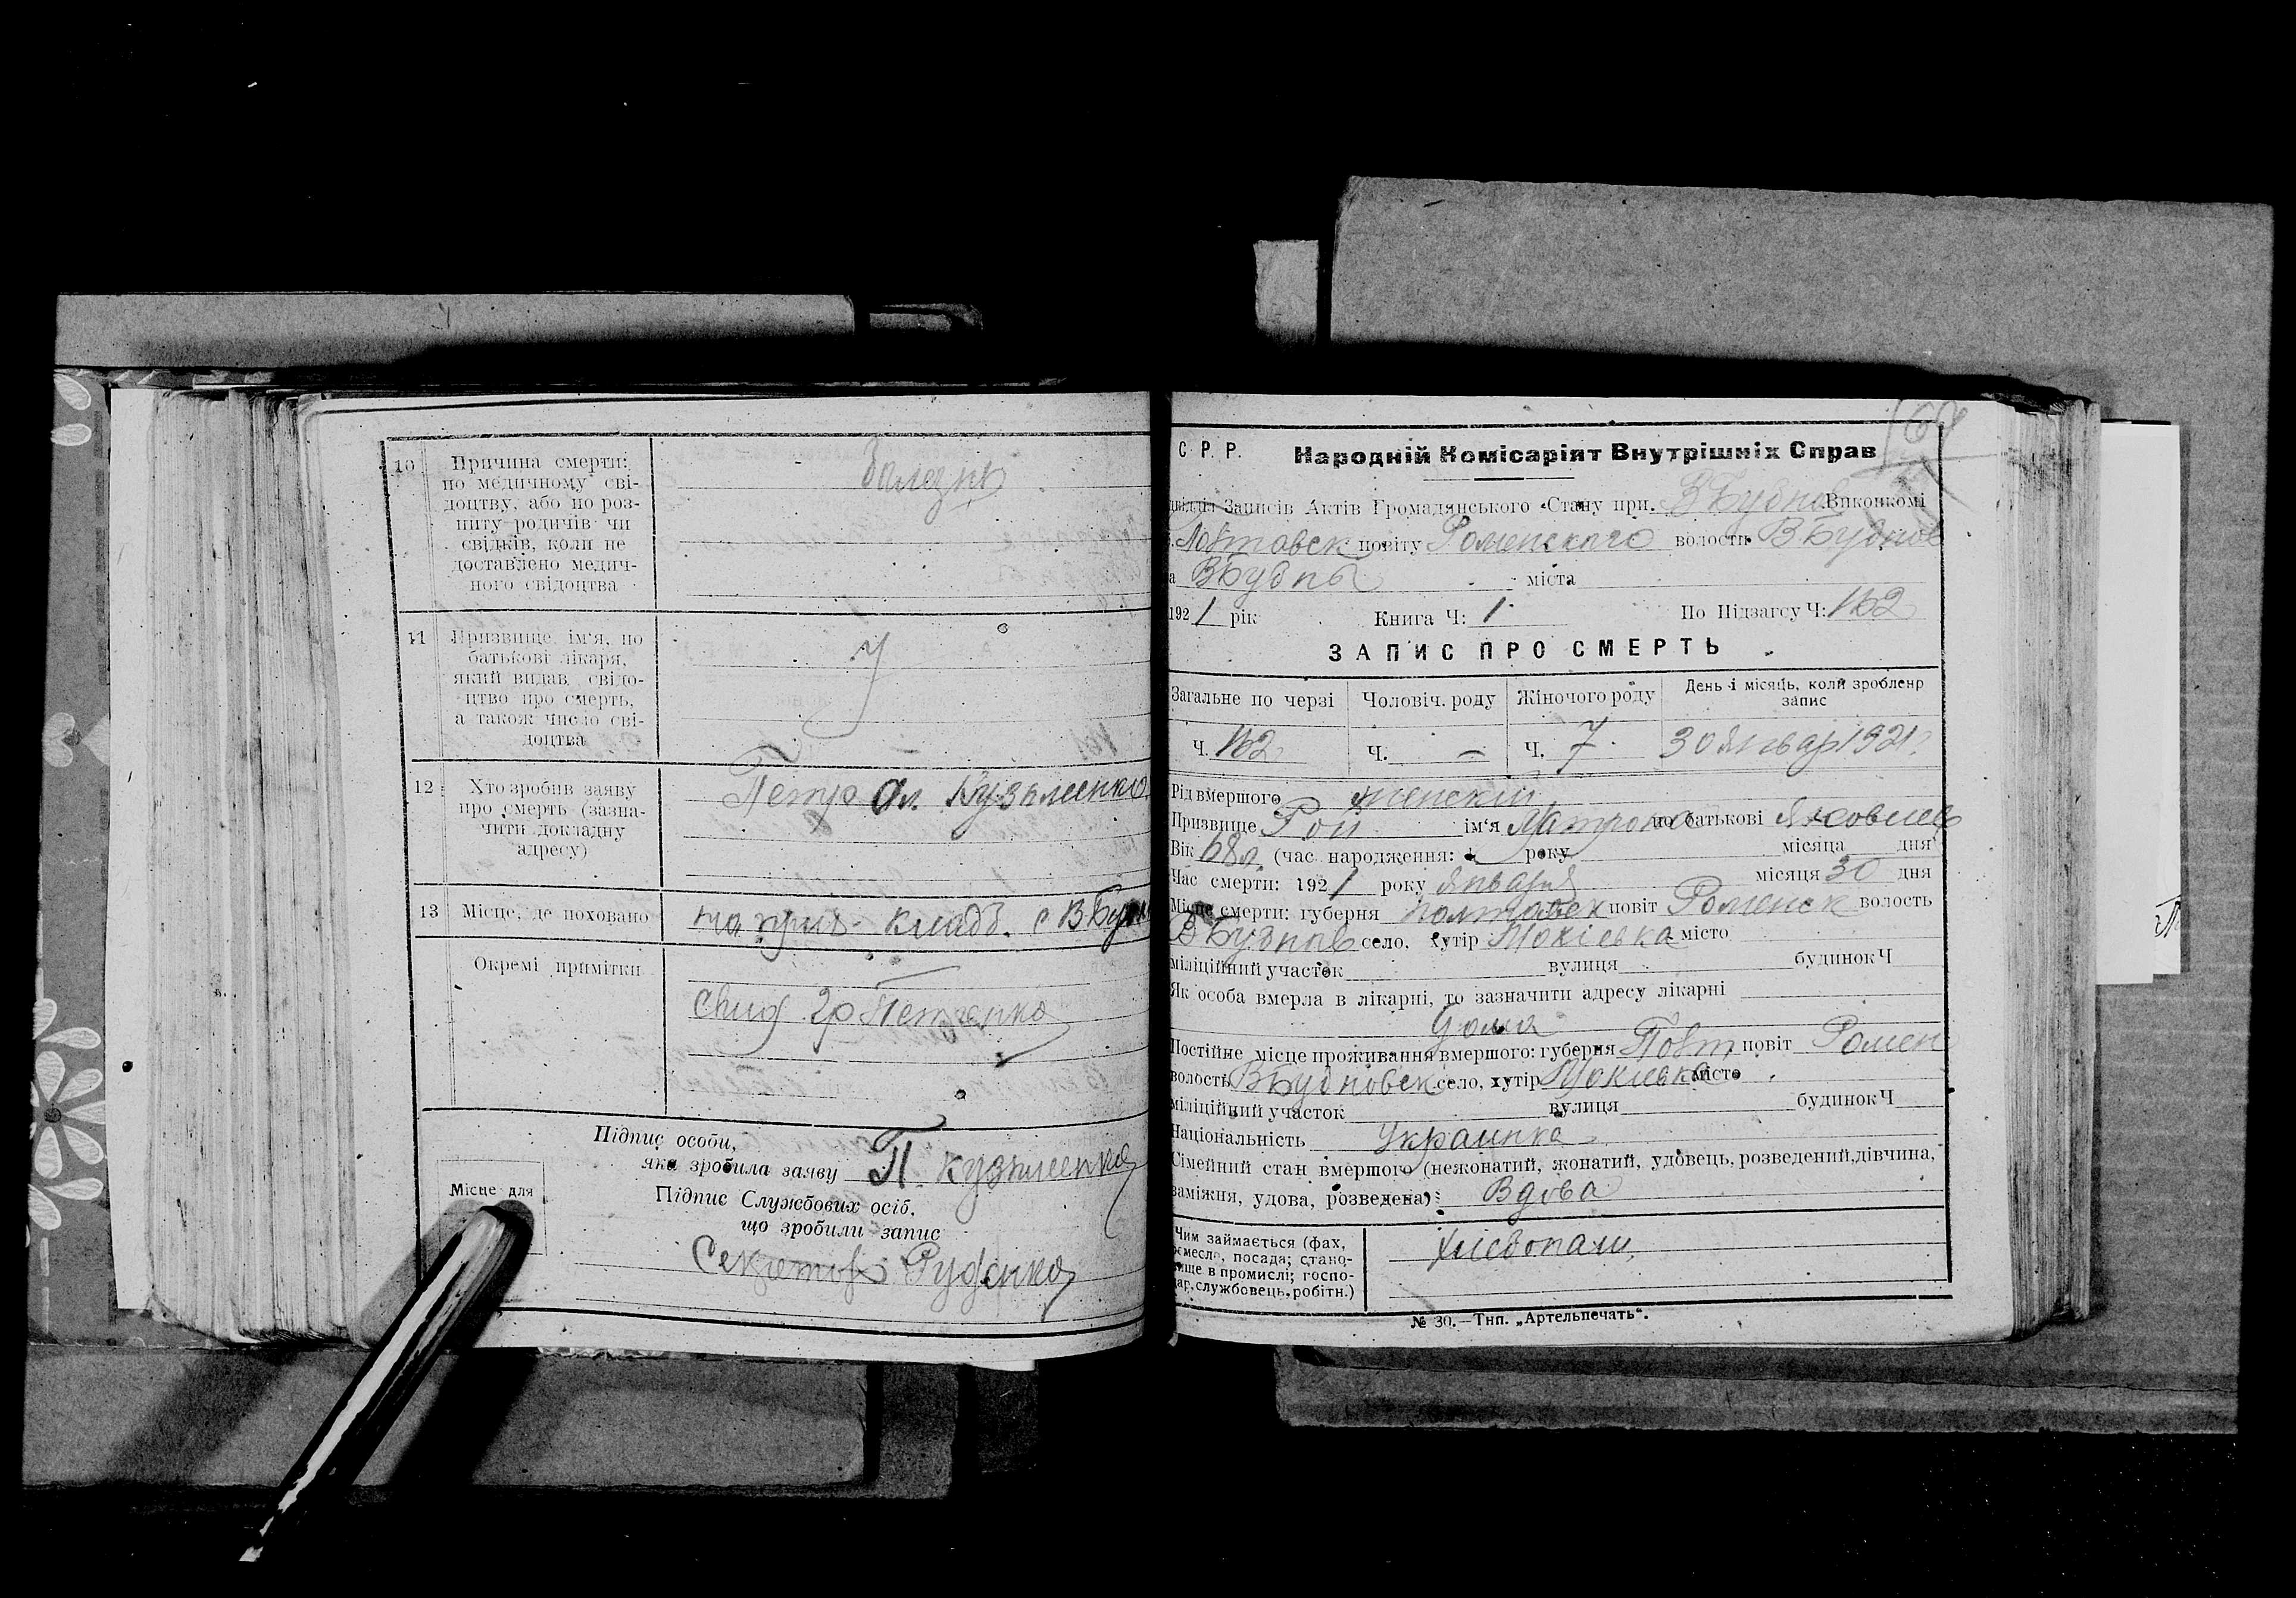 10 Причина смерти:
по медичному сві-
доцтву, або по роз-
питу родичів чи
свідків, коли не
доставлено медич-
ного свідоцтва
Болезнь
11 Призвище, ім'я, по
батькові лікаря,
який видав свідо-
цтво про смерть,
а також число сві-
доцтва
12 Хто зробив заяву
про смерть (зазна-
чити докладну
адресу)
Петро Ал. Кузьменко
13 Місце, де поховано
на прих. кладб. с В Бубны
Окремі примітки
Свид гр Петренко
Підпис особи,
яка зробила заяву П. Кузьменко
Місце для
Підпис Службових осіб,
що зробили запис
Секретарь Руденко
С. Р. Р. Народній Комісаріят Внутрішніх Справ
Записів Актів Громадянського Стану при В Бубнов Виконкомі
Повтавск повіту Роменского волости В Бубнов
а ВБубны міста
1921 рік Книга Ч: 1 По Підзагсу Ч: 162
ЗАПИС ПРО СМЕРТЬ
Загальне по черзі Чоловіч. роду Жіночого роду День і місяць, коли зроблено
запис
Ч. 162 Ч. — Ч. 7 30 Январ 1921 г.
Рід вмершого женский
Призвище Рой ім'я Матрона по батькові Яковлев
Вік 68 л. (час народження: року місяца дня
Час смерти: 1921 року Января місяця 30 дня
Місце смерти: губерня Полтавск повіт Роменск волость
В Бубнов село, хутір Мокіевка місто
міліційний участок вулиця будинок Ч
Як особа вмерла в лікарні, то зазначити адресу лікарні
Дома
Постійне місце проживання вмершого: губерня Повт повіт Ромен
волость ВБубновск село, хутір Мокиевка місто
міліційний участок вулиця будинок Ч
Національність Украинка
Сімейний стан вмершого (нежонатий, жонатий, удовець, розведений, дівчина,
заміжня, удова, розведена): Вдова
Чим займається (фах,
ремесло, посада; стано-
вище в промислі; госпо-
дар, службовець, робітн.)
Хлебопаш.
№ 30.—Тип. „Артельпечать“.